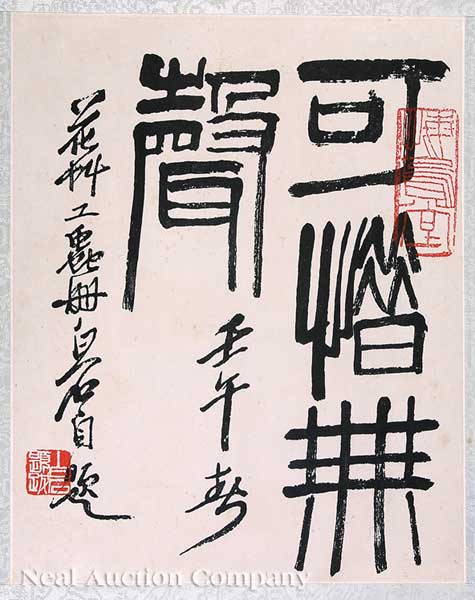 可惜無
聲
壬午春
花艸工蟲冊白石自題
悔烏堂
Neal Auction Company